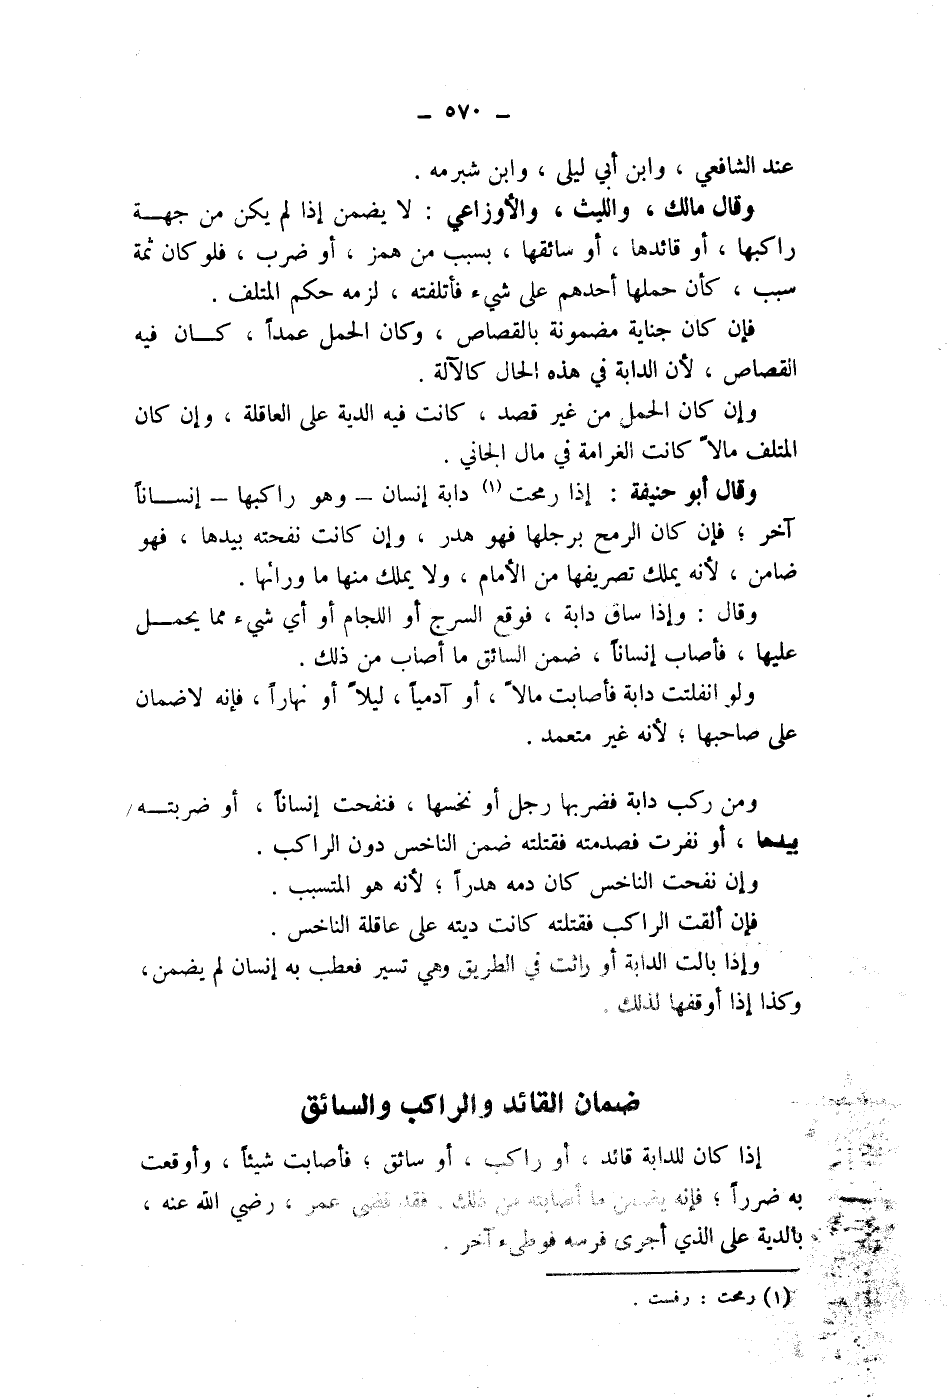 – ٥٧٠ –
عند الشافعي ، وابن أبي ليلى ، وابن شبرمه .
وقال مالك ، والليث ، والأوزاعي : لا يضمن إذا لم يكن من جهـــة
راكبها ، أو قائدها ، أو سائقها ، بسبب من همز ، أو ضرب ، فلو كان ثمة
سبب ، كأن حملها أحدهم على شيء فأتلفته ، لزمه حكم المتلف .
فإن كان جناية مضمونة بالقصاص ، وكان الحمل عمداً ، كـــان فيه
القصاص ، لأن الدابة في هذه الحال كالآلة .
وإن كان الحمل من غير قصد ، كانت فيه الدية على العاقلة ، وإن كان
المتلف مالاً كانت الغرامة في مال الجاني .
وقال أبو حنيفة : إذا رمحت (١) دابة إنسان – وهو راكبها – إنســـاناً
آخر ؛ فإن كان الرمح برجلها فهو هدر ، وإن كانت نفحته بيدها ، فهو
ضامن ، لأنه يملك تصريفها من الأمام ، ولا يملك منها ما ورائها .
وقال : وإذا ساق دابة ، فوقع السرج أو اللجام أو أي شيء مما يحمـــل
عليها ، فأصاب إنساناً ، ضمن السائق ما أصاب من ذلك .
ولو انفلتت دابة فأصابت مالاً ، أو آدمياً ، ليلاً أو نهاراً ، فإنه لاضمان
على صاحبها ؛ لأنه غير متعمد .
ومن ركب دابة فضربها رجل أو نخسها ، فنفحت إنساناً ، أو ضربتـــه
بيدها ، أو نفرت فصدمته فقتلته ضمن الناخس دون الراكب .
وإن نفحت الناخس كان دمه هدراً ؛ لأنه هو المتسبب .
فإن ألقت الراكب فقتلته كانت ديته على عاقلة الناخس .
وإذا بالت الدابة أو راثت في الطريق وهي تسير فعطب به إنسان لم يضمن،
وكذا إذا أوقفها لذلك .
ضمان القائد والراكب والسائق
إذا كان للدابة قائد ، أو راكب ، أو سائق ؛ فأصابت شيئاً ، وأوقعت
به ضرراً ؛ فإنه يضمن ما أصابته من ذلك . فقد قضى عمر ، رضي الله عنه ،
بالدية على الذي أجرى فرسه فوطىء آخر .
(١) رمحت : رفست .